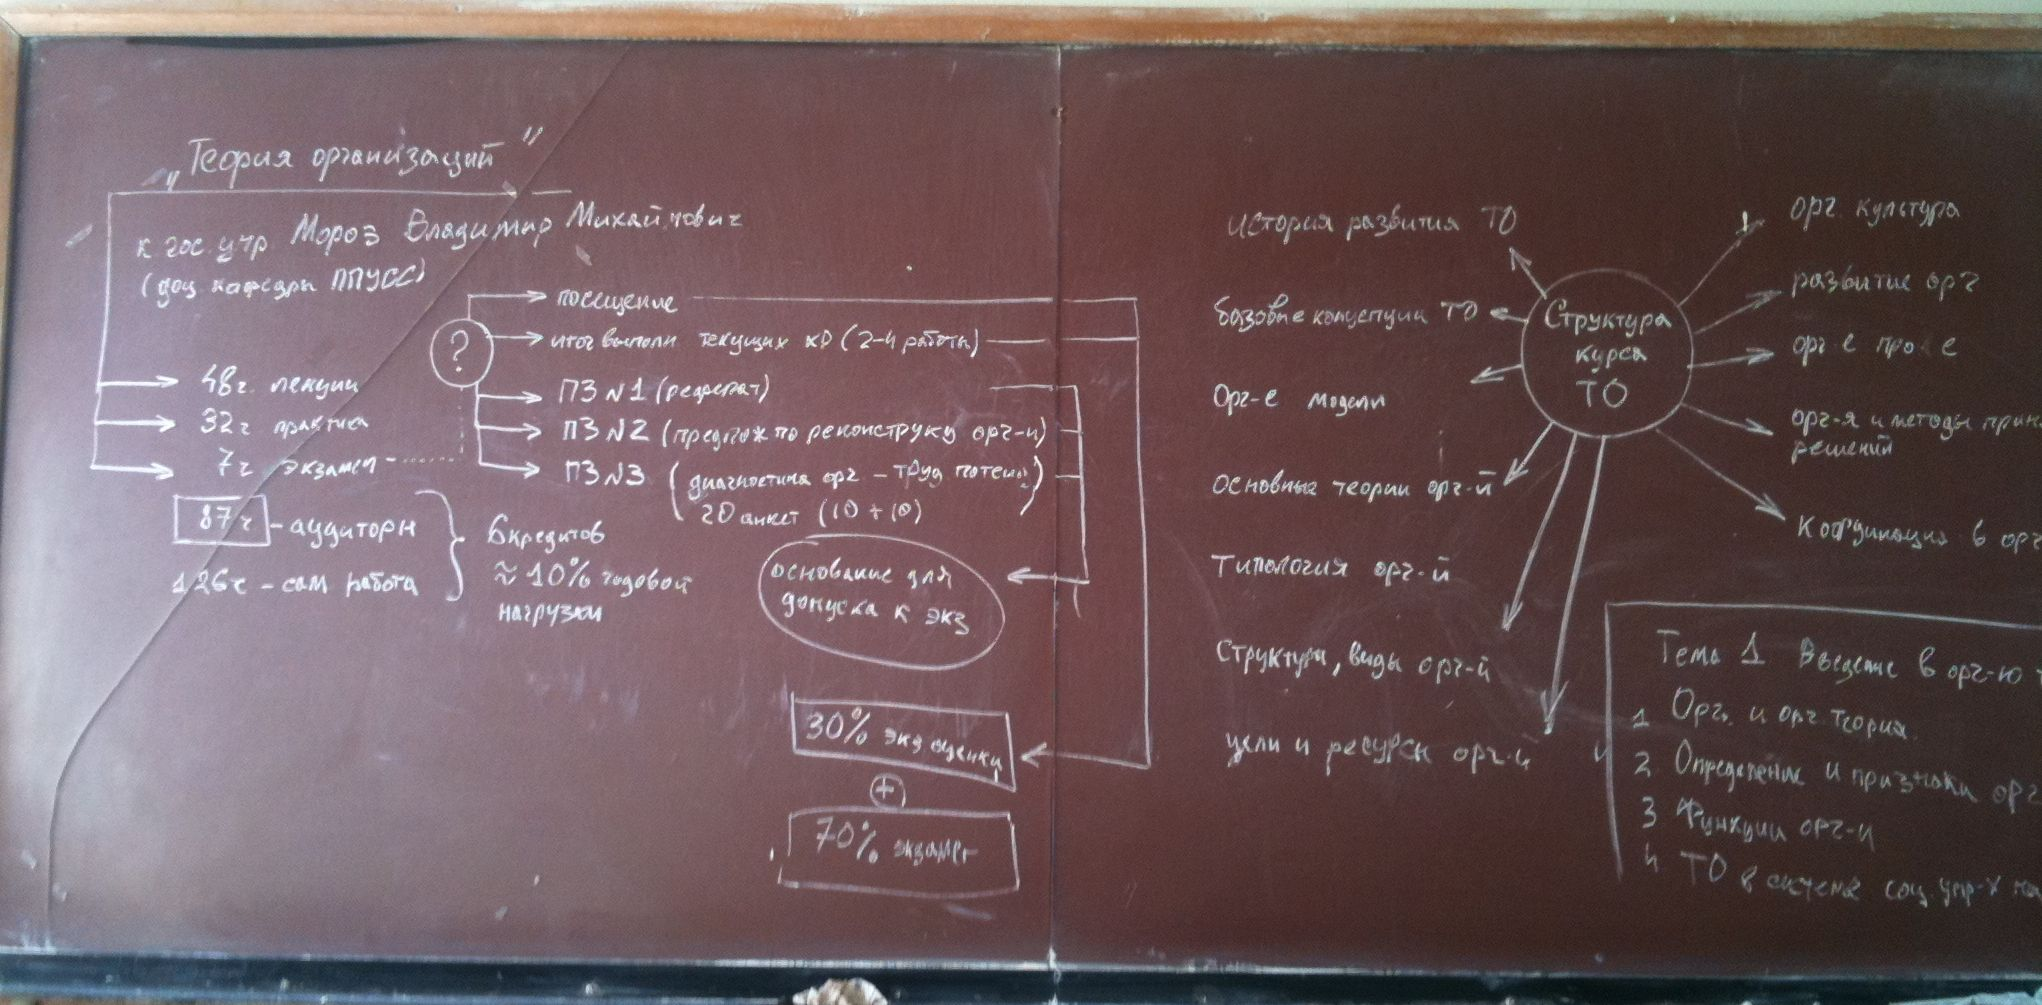 „Теория организаций"
к гос. упр Мороз Владимир Михайлович
(доц кафедры ППУСС)
48ч. лекции
32ч практика
7ч экзамен
87ч - аудиторн
126ч - сам работа
6 кредитов
≈ 10% годовой
нагрузки
?
посещение
итог выполн текущих кР (2-4 работы)
ПЗ №1 (реферат)
ПЗ №2 (предлож по реконструкц орг-и)
ПЗ №3 (диагностика орг - труд потенц
20 анкет (10 + 10)
основание для
допуска к экз
30% экз оценки
+
70% экзамен
Структура
курса
ТО
история развития ТО
базовые концепции ТО
Орг-е модели
основные теории орг-й
типология орг-й
Структура, виды орг-й
цели и ресурсы орг-и
орг. культура
развитие орг
орг-е
орг-я и методы прин
решений
Координация в орг
Тема 1 Введение в орг-ю
1 Орг. и орг. теория.
2 Определение и признаки орг
3 Функции орг-и
4 ТО в система соц. упр-х на